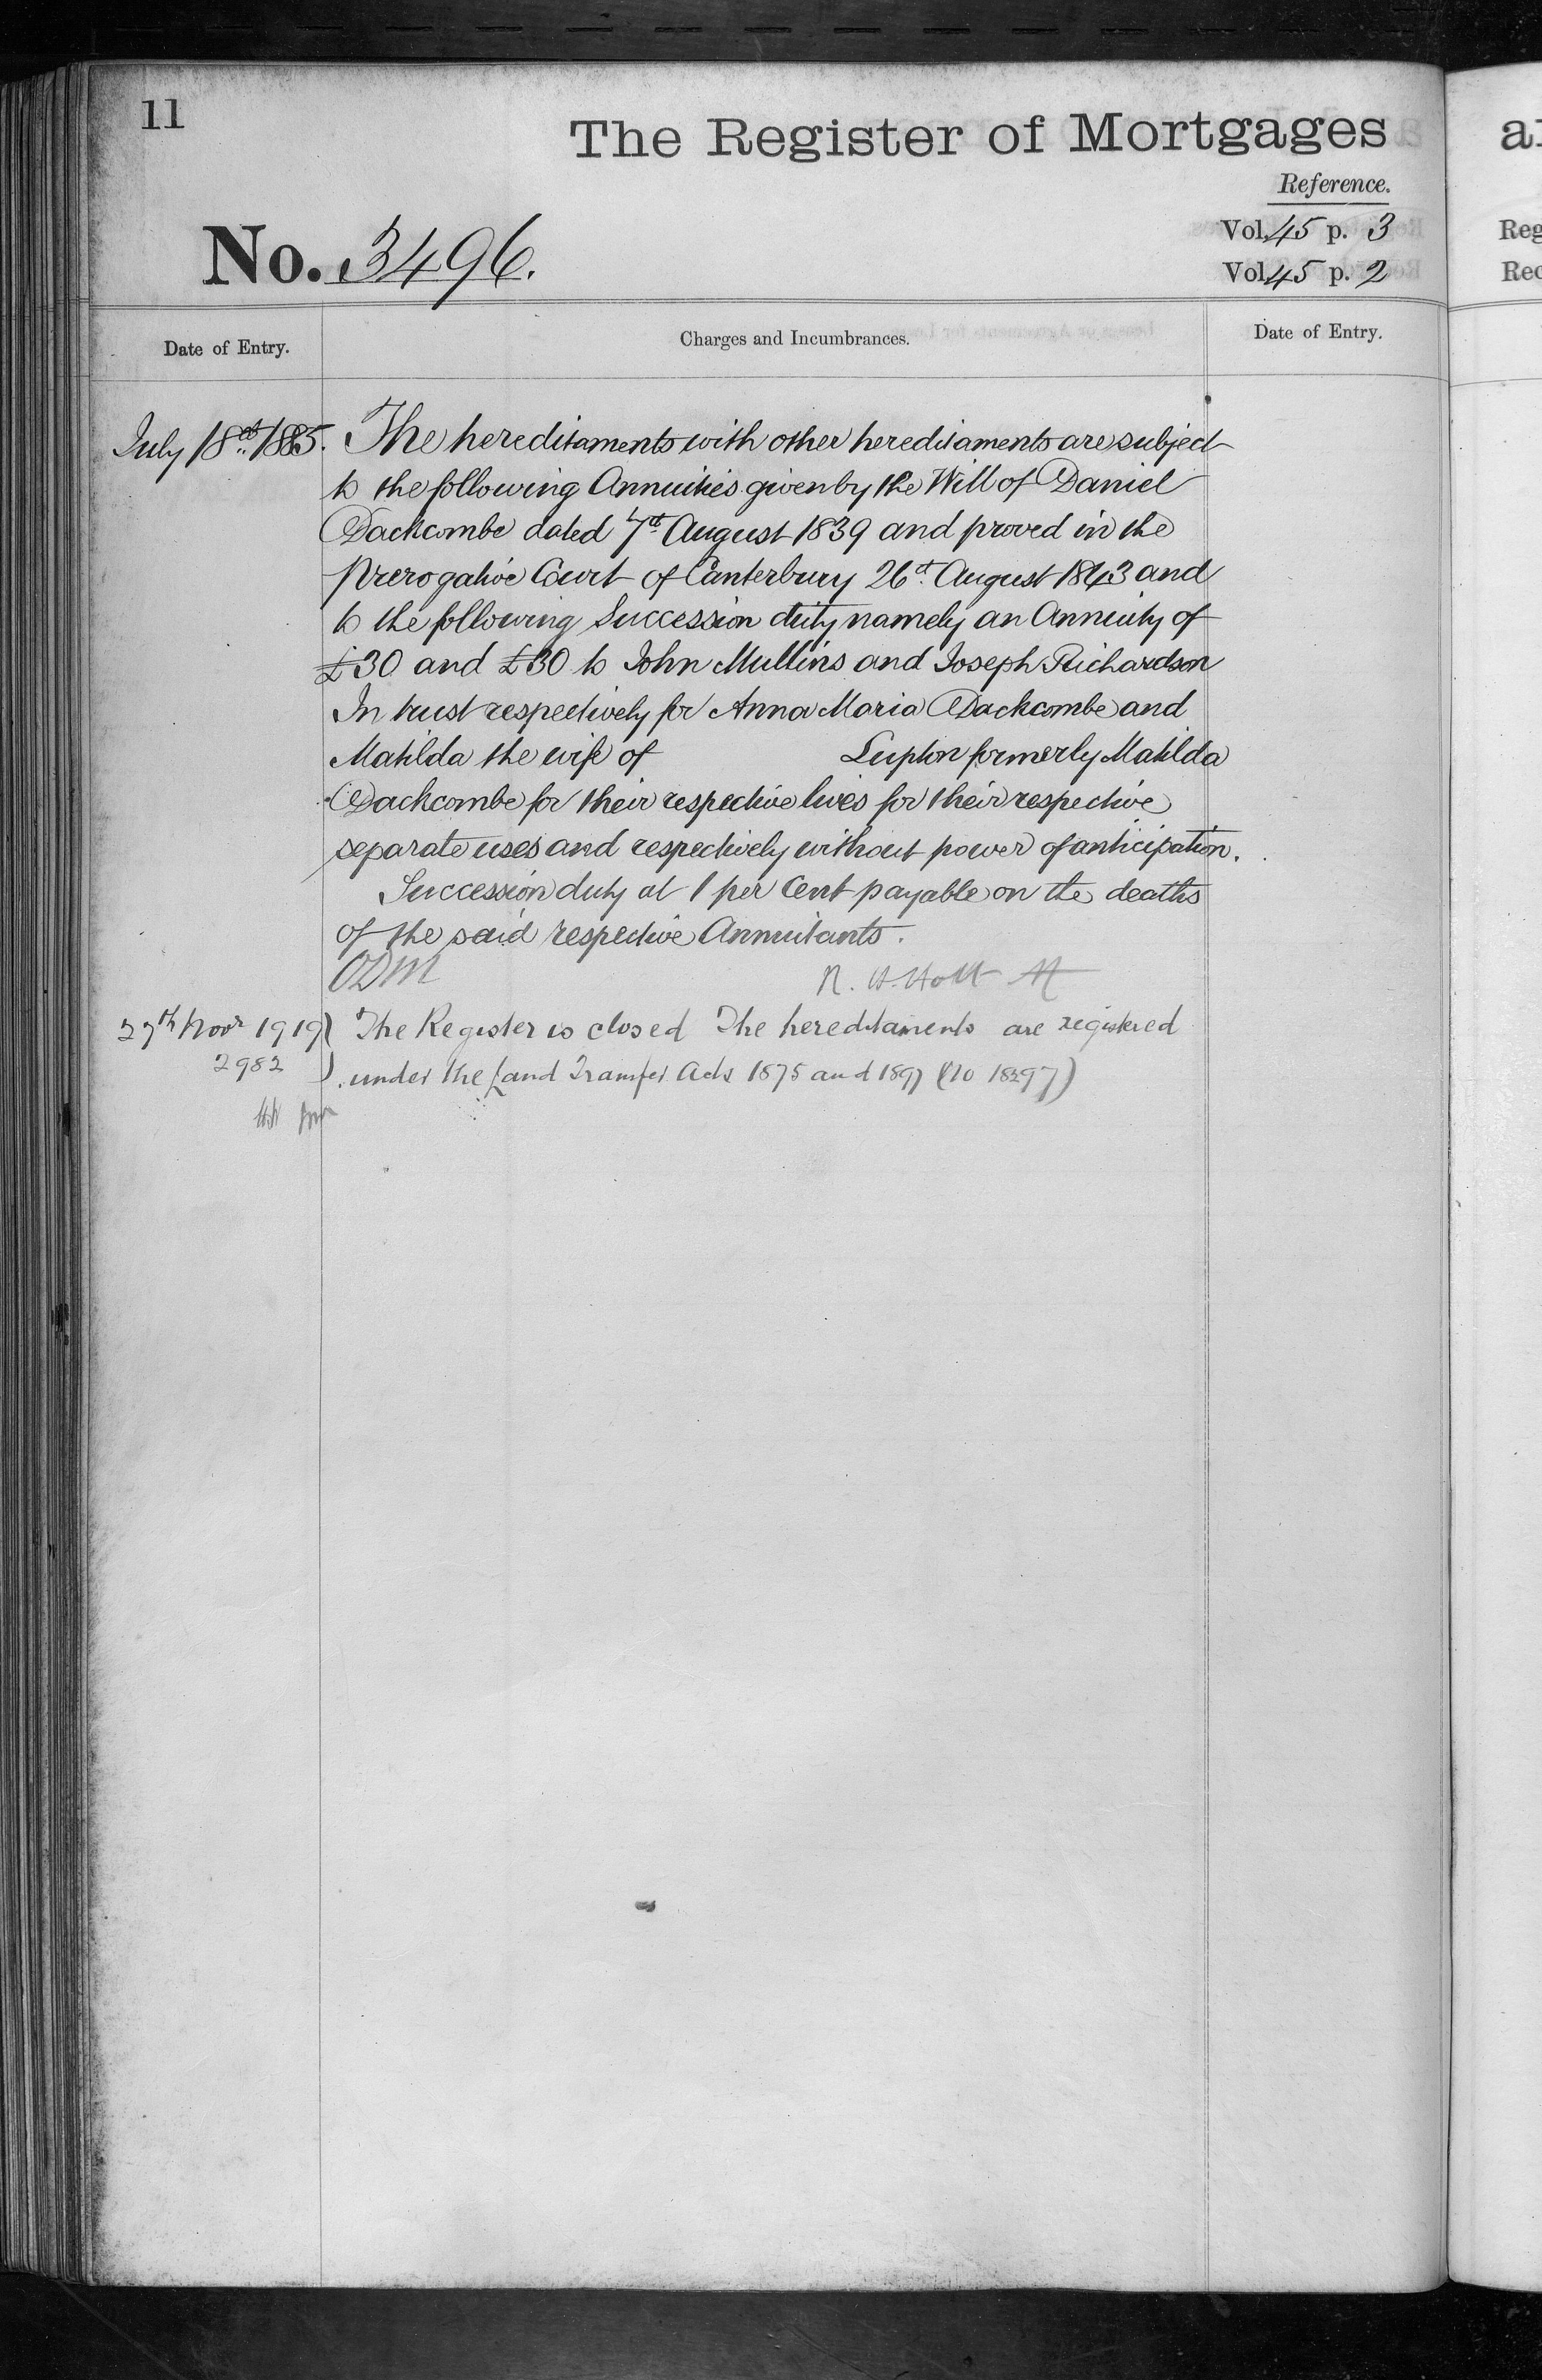 11
The Register of Mortgages
Reference.
No. 3496.
Vol. 45 p. 3
Vol. 45 p. 2
Date of Entry.
Charges and Incumbrances.
Date of Entry.
July 18th 1885. The hereditaments with other hereditaments are subject
to the following Annuities given by the Will of Daniel
Dackcombe dated 7th August 1839 and proved in the
Prerogative Court of Canterbury 26th August 1843 and
to the following Succession duty namely an Annuity of
£30 and £30 to John Mullins and Joseph Richardson
In trust respectively for Anna Maria Dackcombe and
Matilda the wife of Lupton formerly Matilda
Dackcombe for their respective lives for their respective
separate uses and respectively without power of anticipation.
Succession duty at 1 per Cent payable on the deaths
of the said respective Annuitants.
ODM R. H. Holt
27th Novr 1919 The Register is closed The hereditaments are registered
2982 under the Land Transfer Acts 1875 and 1897 (No
a
Reg
Rec